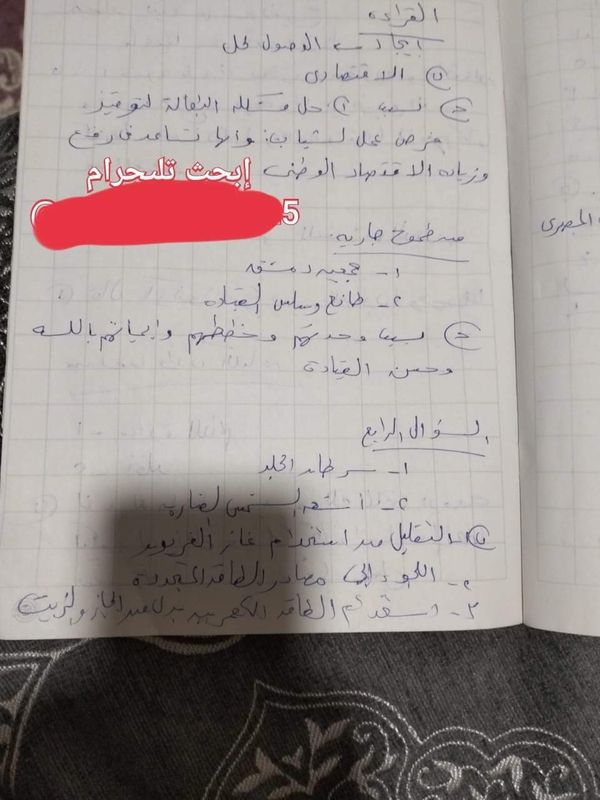 القراءة
إيجاد الوصول لحل
الاقتصادى
بسبب ① حل مشكلة البطالة لتوفير
فرص عمل لشباب، وانها تساعد فى رفع
وزياده الاقتصاد الوطنى
إبحث تليجرام
5
من طموح جارية
١- دمشق
٢- طائع وسلس القيادة
بسبب وحدتهم وخططهم وإيمانهم بالله
وحسن القيادة
المصرى
السؤال الرابع
١- سرطان الجلد
٢- اشعه الشمس لضاره
التقليل من استخدام غاز الفريون
٢- اللجوء إلى مصادر الطاقة المتجددة
٣- استخدام الطاقه الكهربيه بدل من الجاز والزيت